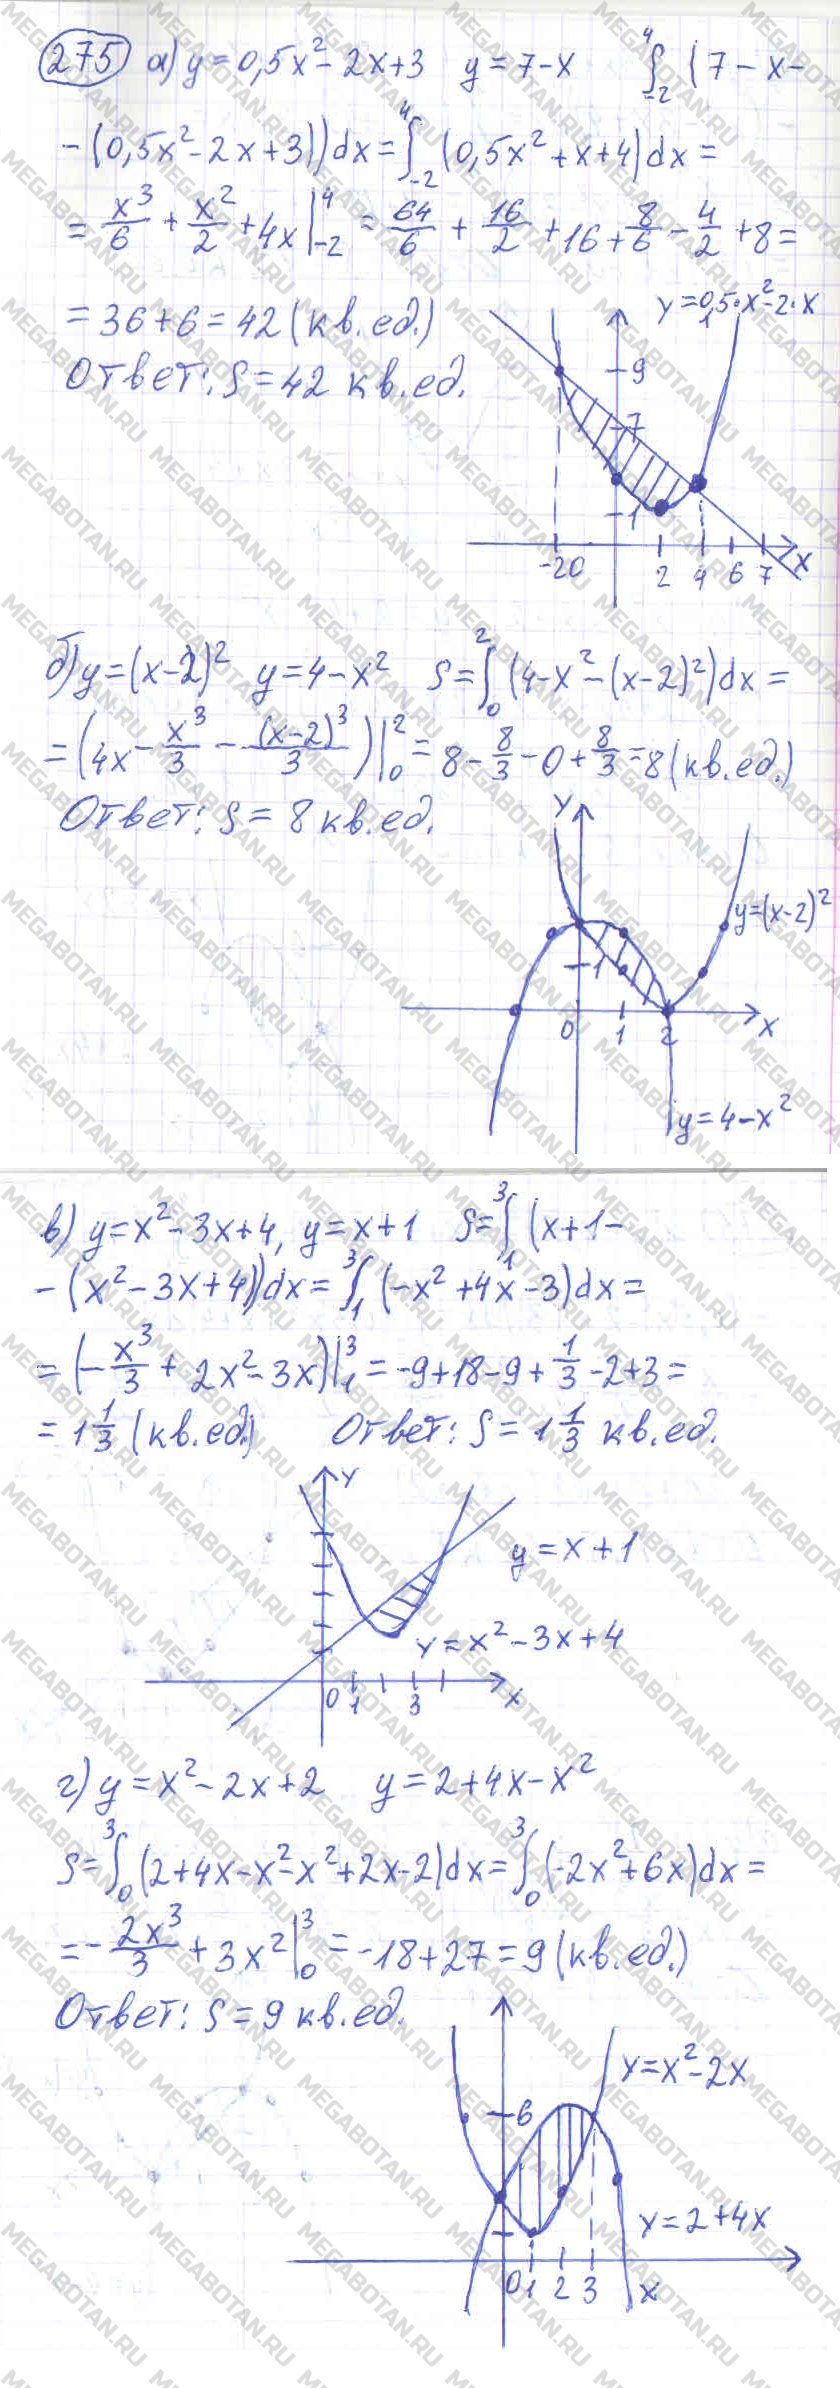 275 а) y = 0,5x² - 2x + 3   y = 7 - x   ∫₋₂⁴ (7 - x -
- (0,5x² - 2x + 3)) dx = ∫₋₂⁴ (0,5x² + x + 4) dx =
= x³/6 + x²/2 + 4x |₋₂⁴ = 64/6 + 16/2 + 16 + 8/6 - 4/2 + 8 =
= 36 + 6 = 42 (кв. ед.)
Ответ: S = 42 кв. ед.
y = 0,5·x² - 2·x
9
7
1
1
-2 0 2 4 6 7 x
б) y = (x-2)²   y = 4 - x²   S = ∫₀² (4 - x² - (x-2)²) dx =
= (4x - x³/3 - (x-2)³/3) |₀² = 8 - 8/3 - 0 + 8/3 = 8 (кв. ед.)
Ответ: S = 8 кв. ед.
y
y = (x-2)²
1
0 1 2 x
y = 4 - x²
в) y = x² - 3x + 4, y = x + 1   S = ∫₁³ (x + 1 -
- (x² - 3x + 4)) dx = ∫₁³ (-x² + 4x - 3) dx =
= (-x³/3 + 2x² - 3x) |₁³ = -9 + 18 - 9 + 1/3 - 2 + 3 =
= 1 1/3 (кв. ед.)   Ответ: S = 1 1/3 кв. ед.
y
y = x + 1
y = x² - 3x + 4
0 1 3 x
г) y = x² - 2x + 2   y = 2 + 4x - x²
S = ∫₀³ (2 + 4x - x² - x² + 2x - 2) dx = ∫₀³ (-2x² + 6x) dx =
= -2x³/3 + 3x² |₀³ = -18 + 27 = 9 (кв. ед.)
Ответ: S = 9 кв. ед.
y = x² - 2x
6
y = 2 + 4x
0 1 2 3 x
MEGABOTAN.RU